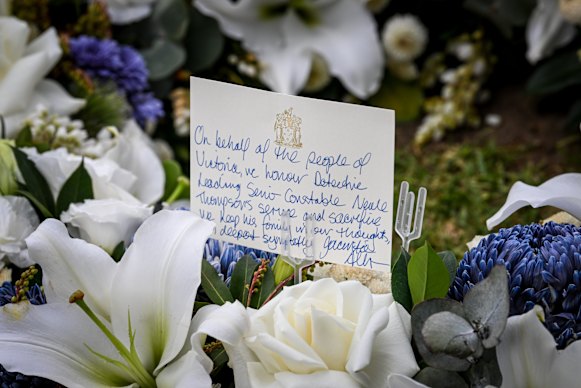 On behalf of the people of
Victoria, we honour Detective
Leading Senior Constable Neale
Thompson's service and sacrifice.
We keep his family in our thoughts,
in deepest sympathy, Jacinta
Allan